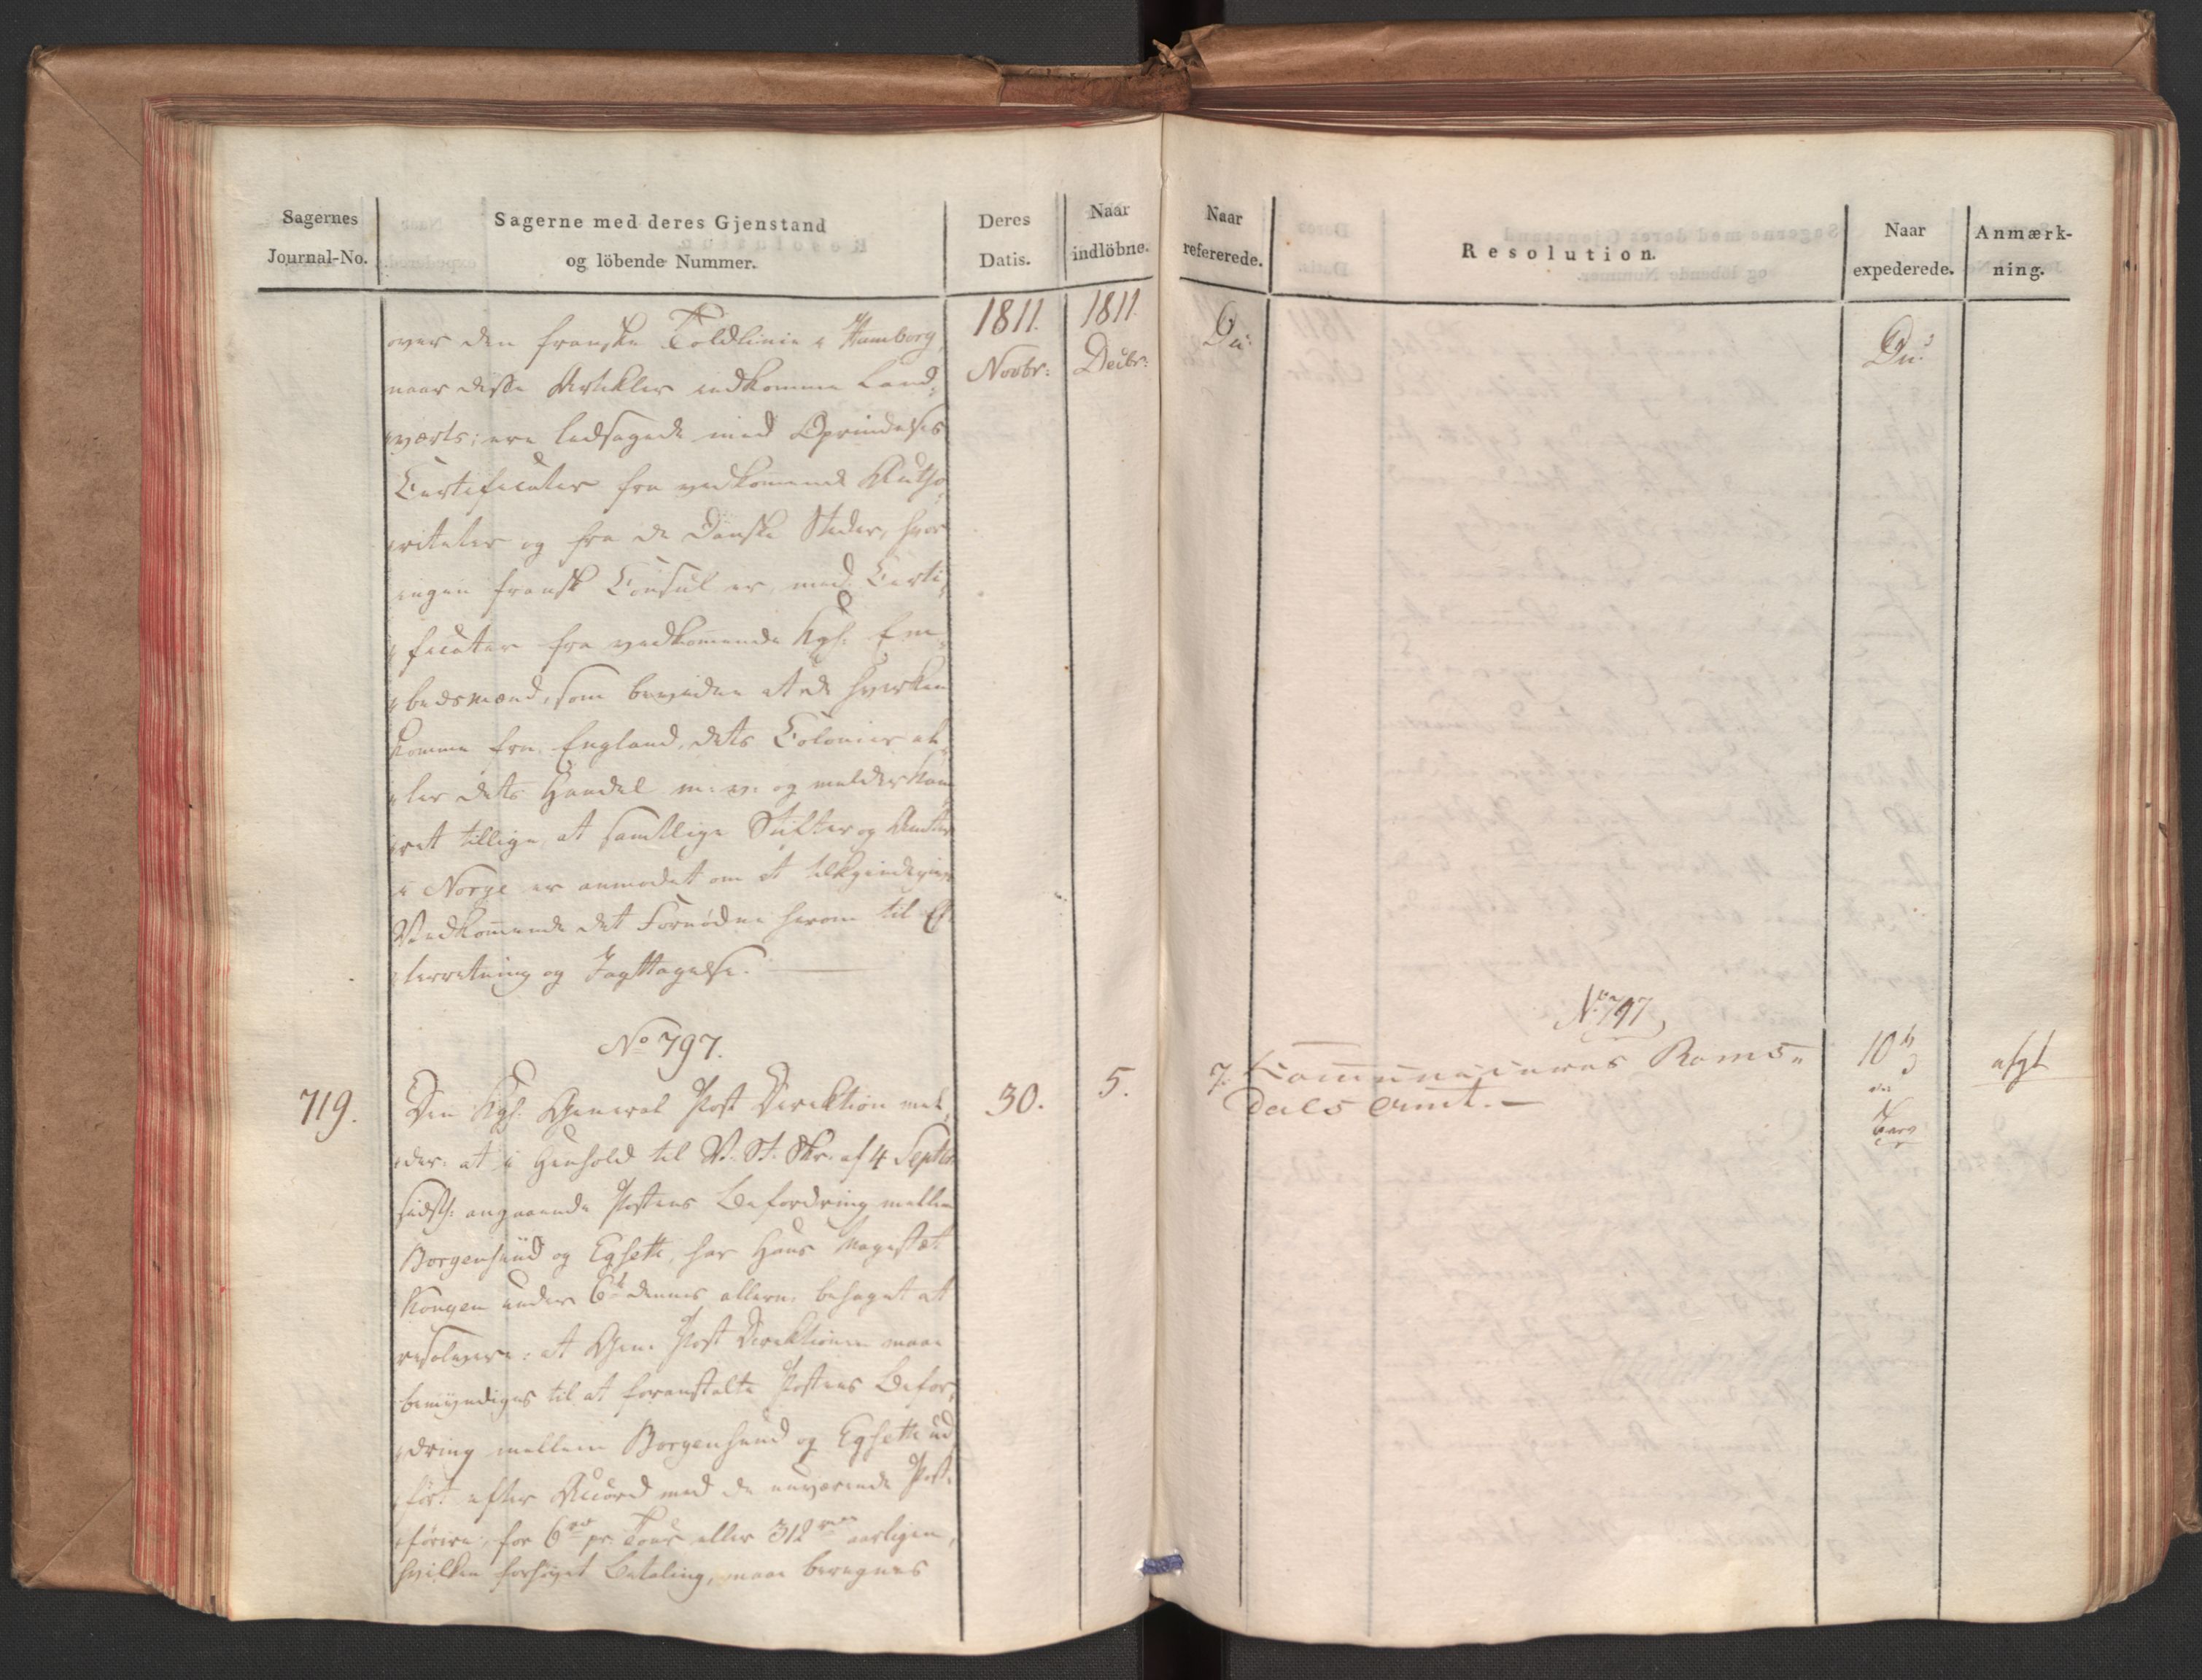 Sagernes
Journal-No.
Sagerne med deres Gjenstand
og löbende Nummer.
Deres
Datis.
Naar
indlöbne.
Naar
refererede.
Resolution.
Naar
expederede.
Anmærk-
ning.
1811.
Novbr:
1811
Decbr:
over den franske Toldlinie i Hamborg,
naar disse Artikler indkomme Land-
værts; ere ledsagede med Oprindelses
Certificater fra vedkommende Autho-
riteter og fra de Danske Steder, hvor
ingen fransk Consul er, med Certi-
ficater fra vedkommende Kgl. Em-
bedsmænd, som bevidne at de hverken
komme fra England, dets Colonier el-
ler dets Handel m: v: og melder Kam
ret tillige at samtlige Stifter og Amter
i Norge er anmodet om at tilkjendegive
Vedkommende det Fornødne herom til Ef-
terretning og Iagttagelse.
No 797.
719.
Den Kgl. General Post Direktion mel-
der: at i Henhold til V. St. Skr. af 4 Septbr
sidstl: angaaende Postens Befordring mellem
Borgensund og Egsette, har Hans Majestæt
Kongen under 6t dennes allern. behaget at
resolvere: at Gen. Post Direktionen maae
bemyndiges til at foranstalte Postens Befor-
dring mellem Borgensund og Egsette ud-
ført efter Accord med de nuværende Post-
førere, for 6 rd pr. Tour eller 312 rd aarligen,
hvilken forhøjet Betaling, maae beregnes
30.
5.
7.
No 797
Communiceres Roms-
dals Amt.
10
afgt